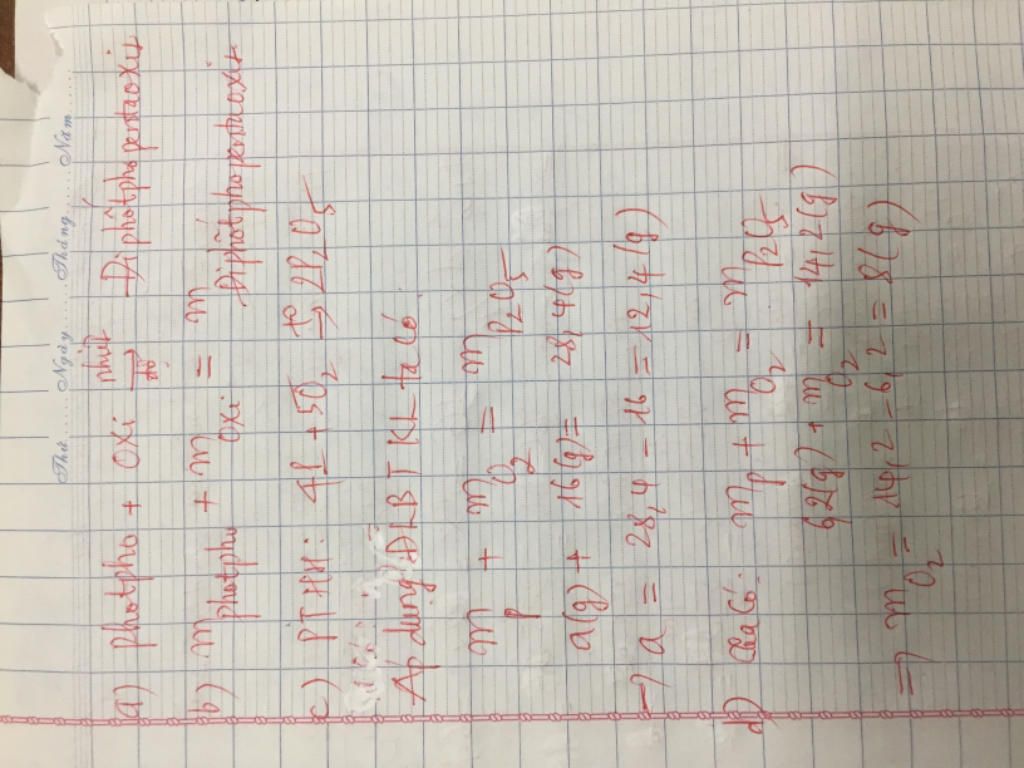 Thứ.......Ngày.......Tháng.......Năm.......
a) photpho + oxi nhiệt độ → Điphôtphopentaoxit
b) m photpho + m oxi = m Điphôtphopentaoxit
c) PTHH: 4P + 5O₂ t° → 2P₂O₅
Áp dụng ĐLBTKL ta có
m P + m O₂ = m P₂O₅
a(g) + 16(g) = 28,4(g)
⇒ a = 28,4 - 16 = 12,4(g)
d) có: m P + m O₂ = m P₂O₅
6,2(g) + m O₂ = 14,2(g)
⇒ m O₂ = 14,2 - 6,2 = 8(g)